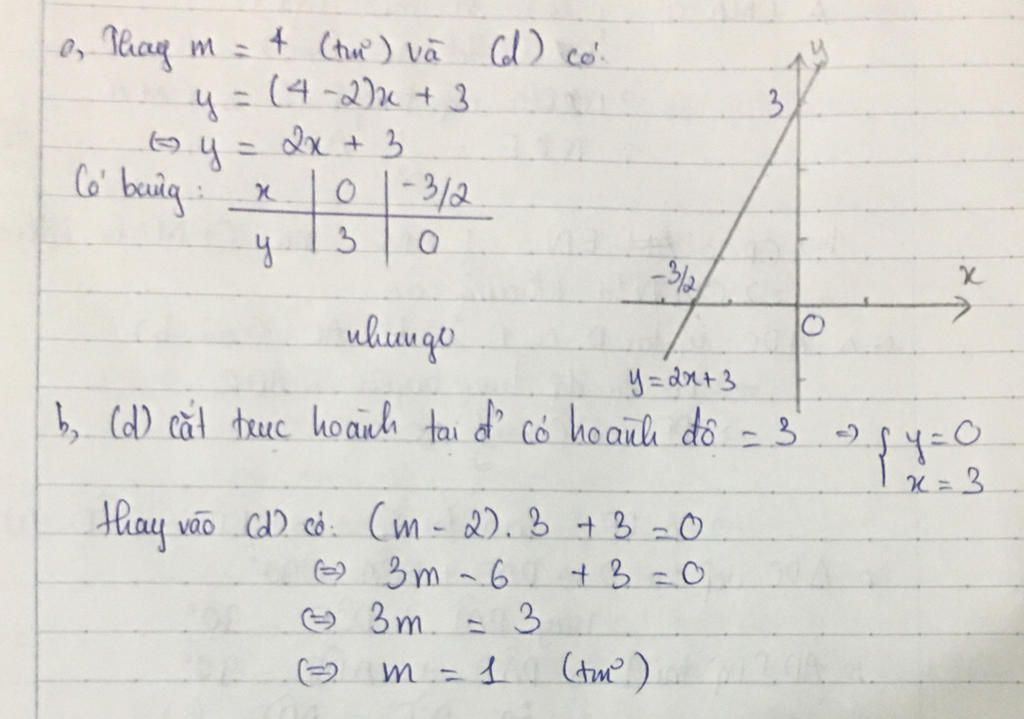 a, Thay m = 4 (tm) và (d) có:
y = (4 - 2)x + 3
⇔ y = 2x + 3
Có bảng:
x | 0 | -3/2
y | 3 | 0
y
3
-3/2
x
O
y = 2x + 3
nhungo
b, (d) cắt trục hoành tại đ' có hoành độ = 3 ⇒ { y = 0
x = 3
thay vào (d) có: (m - 2). 3 + 3 = 0
⇔ 3m - 6 + 3 = 0
⇔ 3m = 3
⇔ m = 1 (tm)